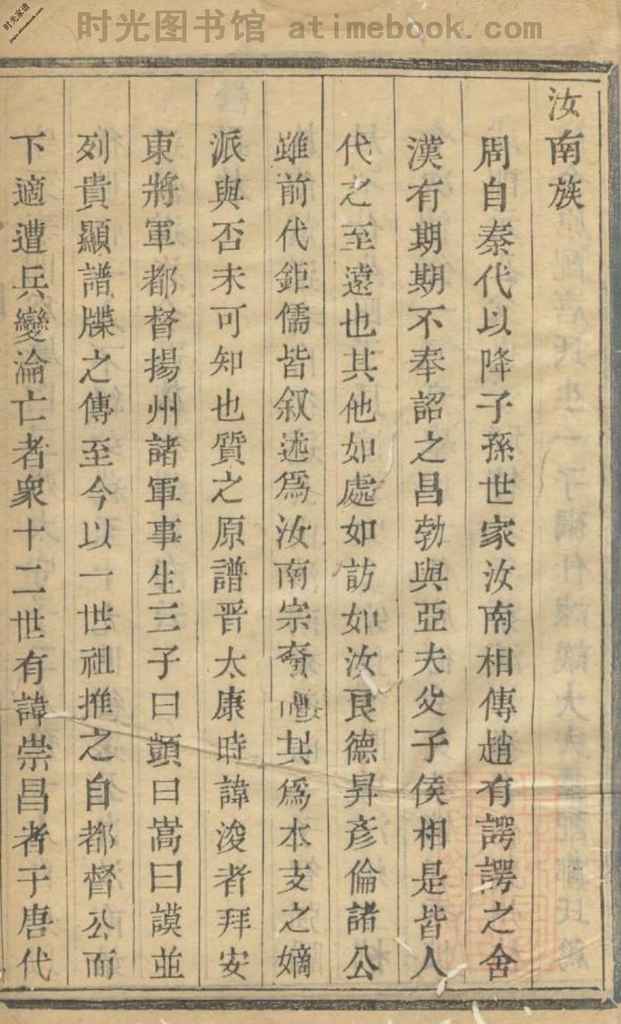 时光图书馆 atimebook.com
汝南族
周自秦代以降子孫世家汝南相傳趙有諤諤之舍
漢有期期不奉詔之昌勃與亞夫父子侯相是皆人
代之至遠也其他如處如訪如汝良德昇彥倫諸公
雖前代鉅儒皆叙述爲汝南宗裔其爲本支之嫡
派與否未可知也質之原譜晋太康時諱浚者拜安
東將軍都督揚州諸軍事生三子曰顗曰嵩曰謨並
列貴顯譜牒之傳至今以一世祖推之自都督公而
下適遭兵變淪亡者衆十二世有諱崇昌者于唐代